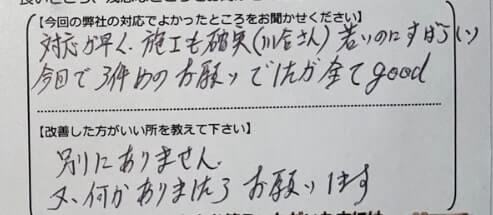 【今回の弊社の対応でよかったところをお聞かせください】
対応が早く、施工も確実(川合さん)若いのにすばらしい
今回で3件めのお願いでしたが全てgood
【改善した方がいい所を教えて下さい】
別にありません。
又、何かありましたらお願いします